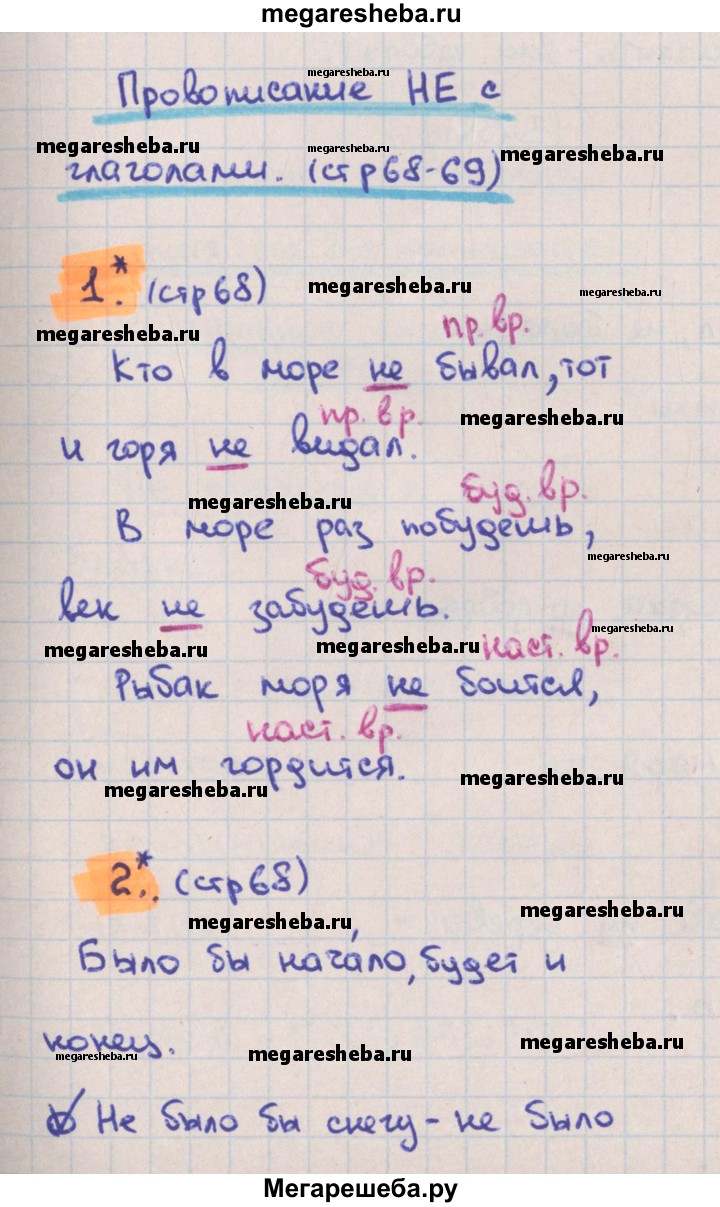 megaresheba.ru
megaresheba.ru
Провописание НЕ с
megaresheba.ru megaresheba.ru megaresheba.ru
глаголами. (стр 68-69)
1.* (стр 68) megaresheba.ru megaresheba.ru
megaresheba.ru пр. вр.
Кто в море не бывал, тот
пр. вр. megaresheba.ru
и горя не видал.
megaresheba.ru буд. вр.
В море раз побудешь,
буд. вр. megaresheba.ru
век не забудешь.
megaresheba.ru megaresheba.ru наст. вр. megaresheba.ru
Рыбак моря не боится,
наст. вр.
он им гордится.
megaresheba.ru megaresheba.ru
2.* (стр 68)
megaresheba.ru megaresheba.ru
Было бы нача́ло, будет и
конец.
megaresheba.ru megaresheba.ru megaresheba.ru
Не было бы снегу - не было
Мегарешеба.ру